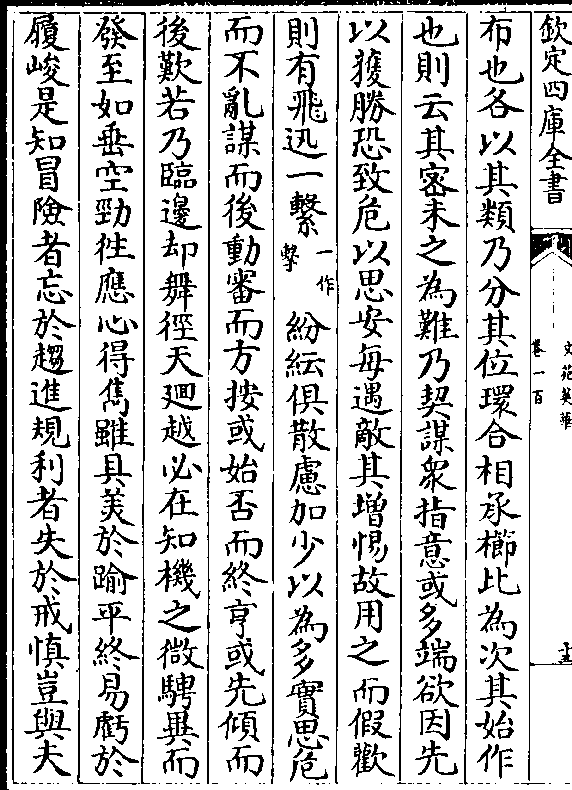 欽定四庫全書
文苑英華
卷一百
十三
布也各以其類乃分其位環合相承櫛比為次其始作
也則云其密未之為難乃契謀衆指意或多端欲因先
以獲勝恐致危以思安每遇敵其增惕故用之而假歡
則有飛迅一繫一作擊紛紜俱散慮加少以為多實思危
而不亂謀而後動審而方按或始否而終亨或先傾而
後歎若乃臨邊却舞徑天廻越必在知機之微騁異而
發至如垂空勁徃應心得雋雖具美於踰平終易虧於
履峻是知冒險者忘於趨進規利者失於戒慎豈與夫